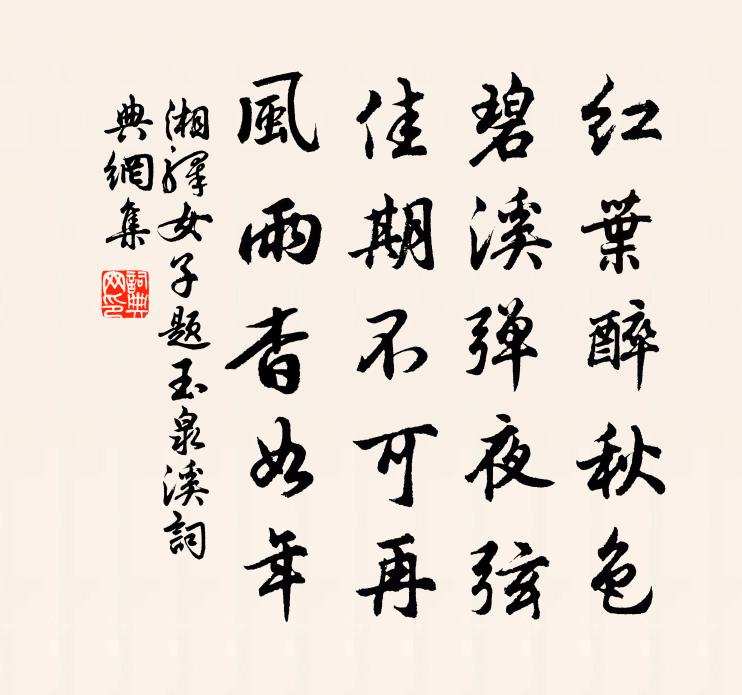 红葉醉秋色
碧溪弹夜弦
佳期不可再
風雨杳如年
湘驛女子題玉泉溪詞
典網集
詞典網印